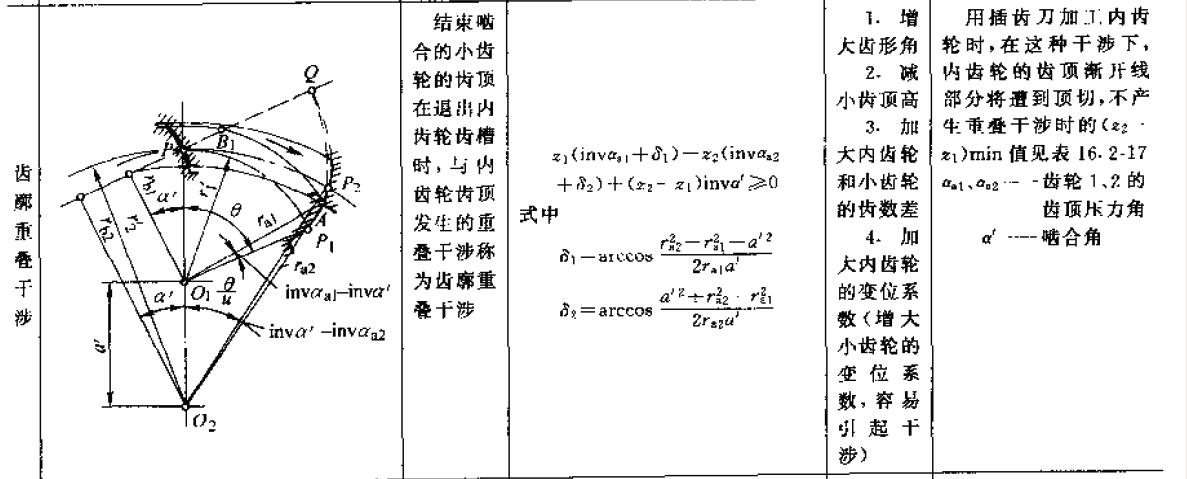 齿
廓
重
叠
干
涉
Q
B₁
P
P₂
A
P₁
r_b1
α′
r′₁
θ
r_a1
r_b2
r′₂
r_a2
O₁
θ/u
invα_a1-invα′
α′
invα′-invα_a2
a′
O₂
结束啮
合的小齿
轮的齿顶
在退出内
齿轮齿槽
时，与内
齿轮齿顶
发生的重
叠干涉称
为齿廓重
叠干涉
z₁(invα_a1+δ₁)-z₂(invα_a2
+δ₂)+(z₂-z₁)invα′≥0
式中
δ₁=arccos (r²_a2-r²_a1-a′²)/(2r_a1a′)
δ₂=arccos (a′²+r²_a2-r²_a1)/(2r_a2a′)
1. 增
大齿形角
2. 减
小齿顶高
3. 加
大内齿轮
和小齿轮
的齿数差
4. 加
大内齿轮
的变位系
数（增大
小齿轮的
变位系
数，容易
引起干
涉）
用插齿刀加工内齿
轮时，在这种干涉下，
内齿轮的齿顶渐开线
部分将遭到顶切，不产
生重叠干涉时的(z₂-
z₁)min值见表16.2-17
α_a1、α_a2——齿轮1、2的
齿顶压力角
α′——啮合角